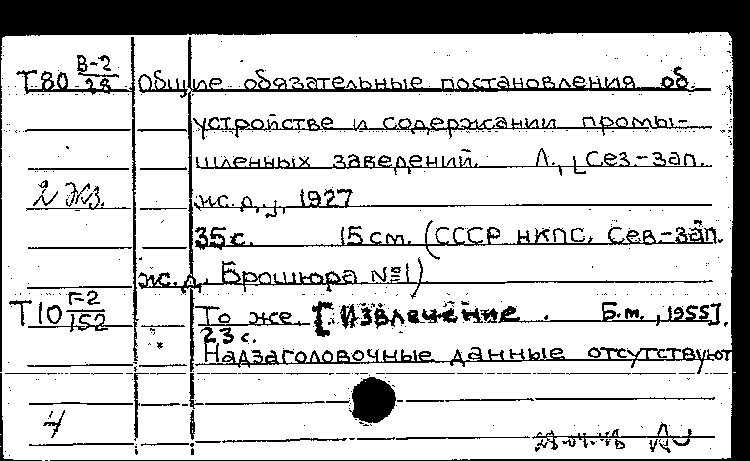 Т80 В-2/28 Общие обязательные постановления об
устройстве и содержании промы-
шленных заведений. Л., [Сез.-зап.
2 экз. жс.д.], 1927
35 с. 15 см. (СССР НКПС, Сев.-зап.
жс.д., Брошюра №1)
Т10 Г-2/152 То же. [Извлечение. Б.м., 1955].
23 с.
Надзаголовочные данные отсутствуют
4